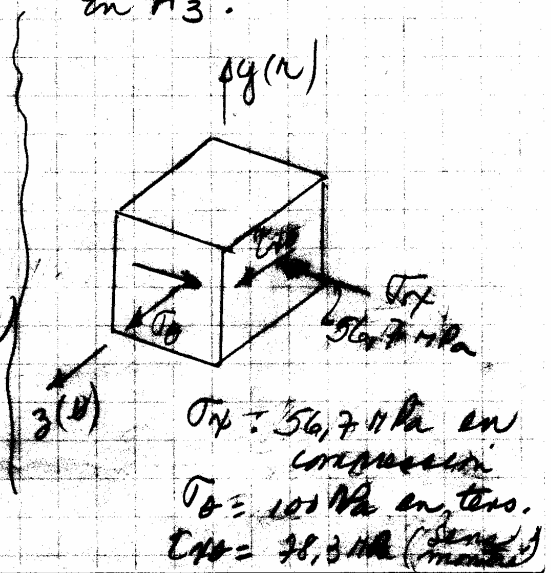 en A3.
y(r)
τxθ
σx
56,7 MPa
σθ
z(θ)
σx = 56,7 MPa en
compression
σθ = 100 MPa en tens.
τxθ = 78,3 MPa (sens